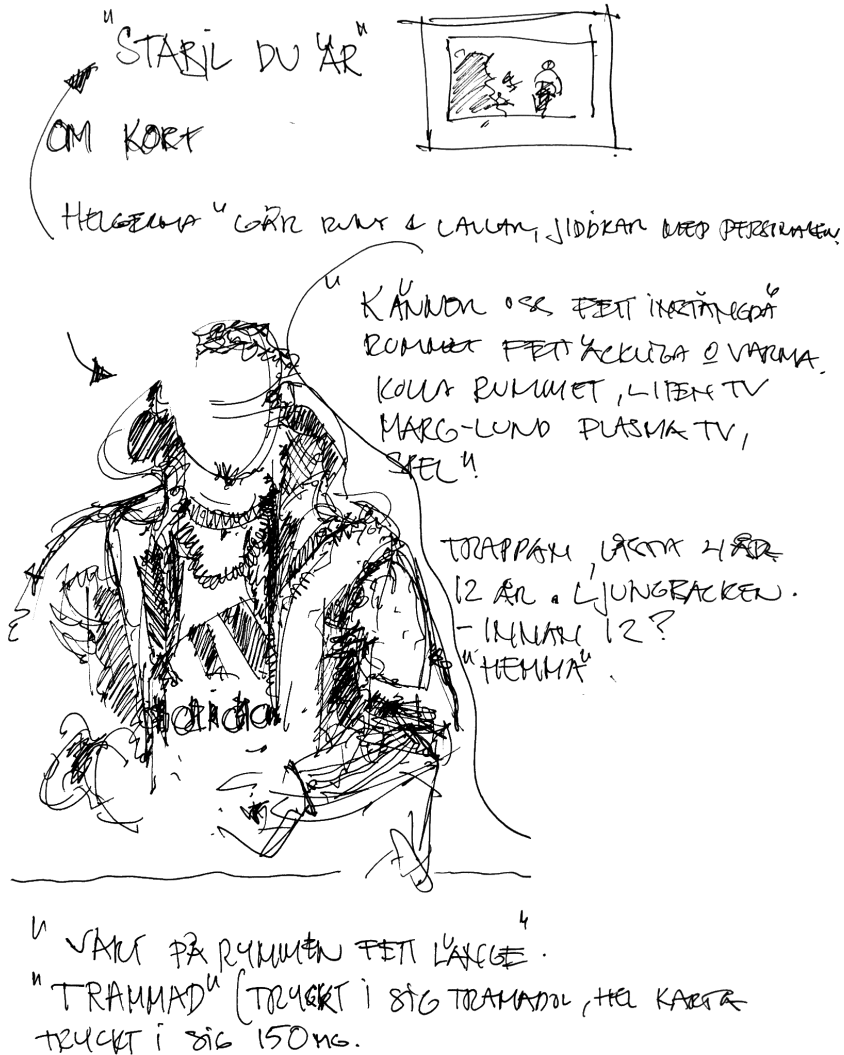 "STABIL DU ÄR"
OM KORT
HELGERNA" GÅR RUNT & LALLAR, JIDDRAR MED PERSONALEN.
"KÄNNER OSS FETT INSTÄNGDA"
RUMMET FETT ÄCKLIGA O VARMA.
KOLLA RUMMET, LITEN TV
MARG-LUND PLASMA TV,
SPEL".
TRAPPAN, LÅSTA 4 ÅR
12 ÅR. LJUNGBACKEN.
- INNAN 12?
"HEMMA".
adidas
"VART PÅ RYMMEN FETT LÄNGE".
"TRAMMAD" (TRYCKT I SIG TRAMADOL, HEL KARTA
TRYCKT I SIG 150 MG.